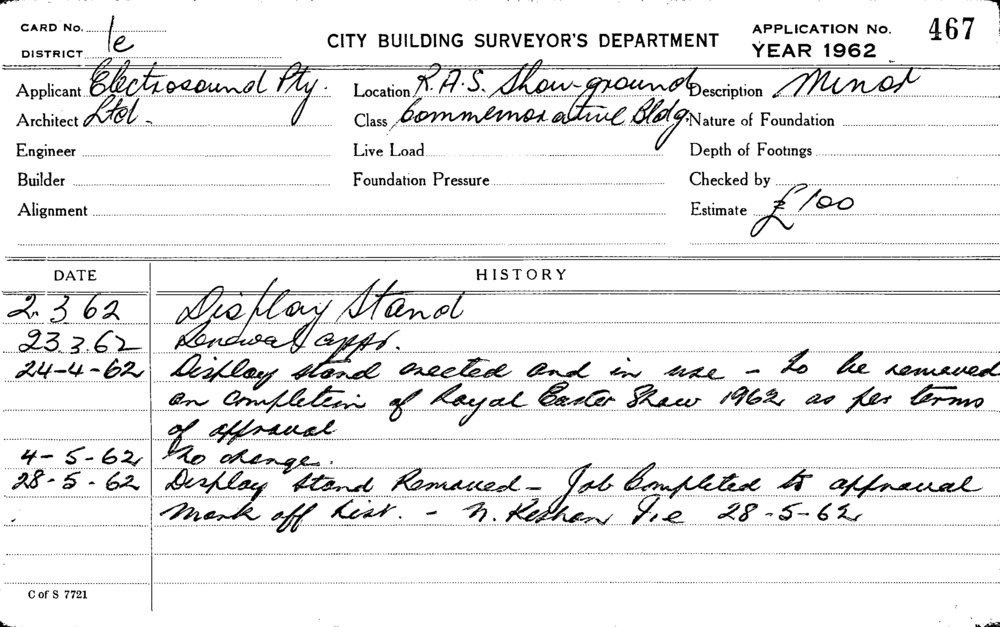 CARD No. 1e
DISTRICT
CITY BUILDING SURVEYOR'S DEPARTMENT
APPLICATION No. 467
YEAR 1962
Applicant Electrosound Pty. Location R.A.S. Showground Description Minor
Architect Ltd. Class Commemorative Bldg. Nature of Foundation
Engineer Live Load Depth of Footings
Builder Foundation Pressure Checked by
Alignment Estimate £100
DATE HISTORY
2.3.62 Display Stand
23.3.62 Renewal appr.
24-4-62 Display stand erected and in use - to be removed
on completion of Royal Easter Show 1962 as per terms
of approval
4-5-62 No change.
28-5-62 Display Stand Removed - Job Completed to approval
Mark off List. - N. 28-5-62
C of S 7721